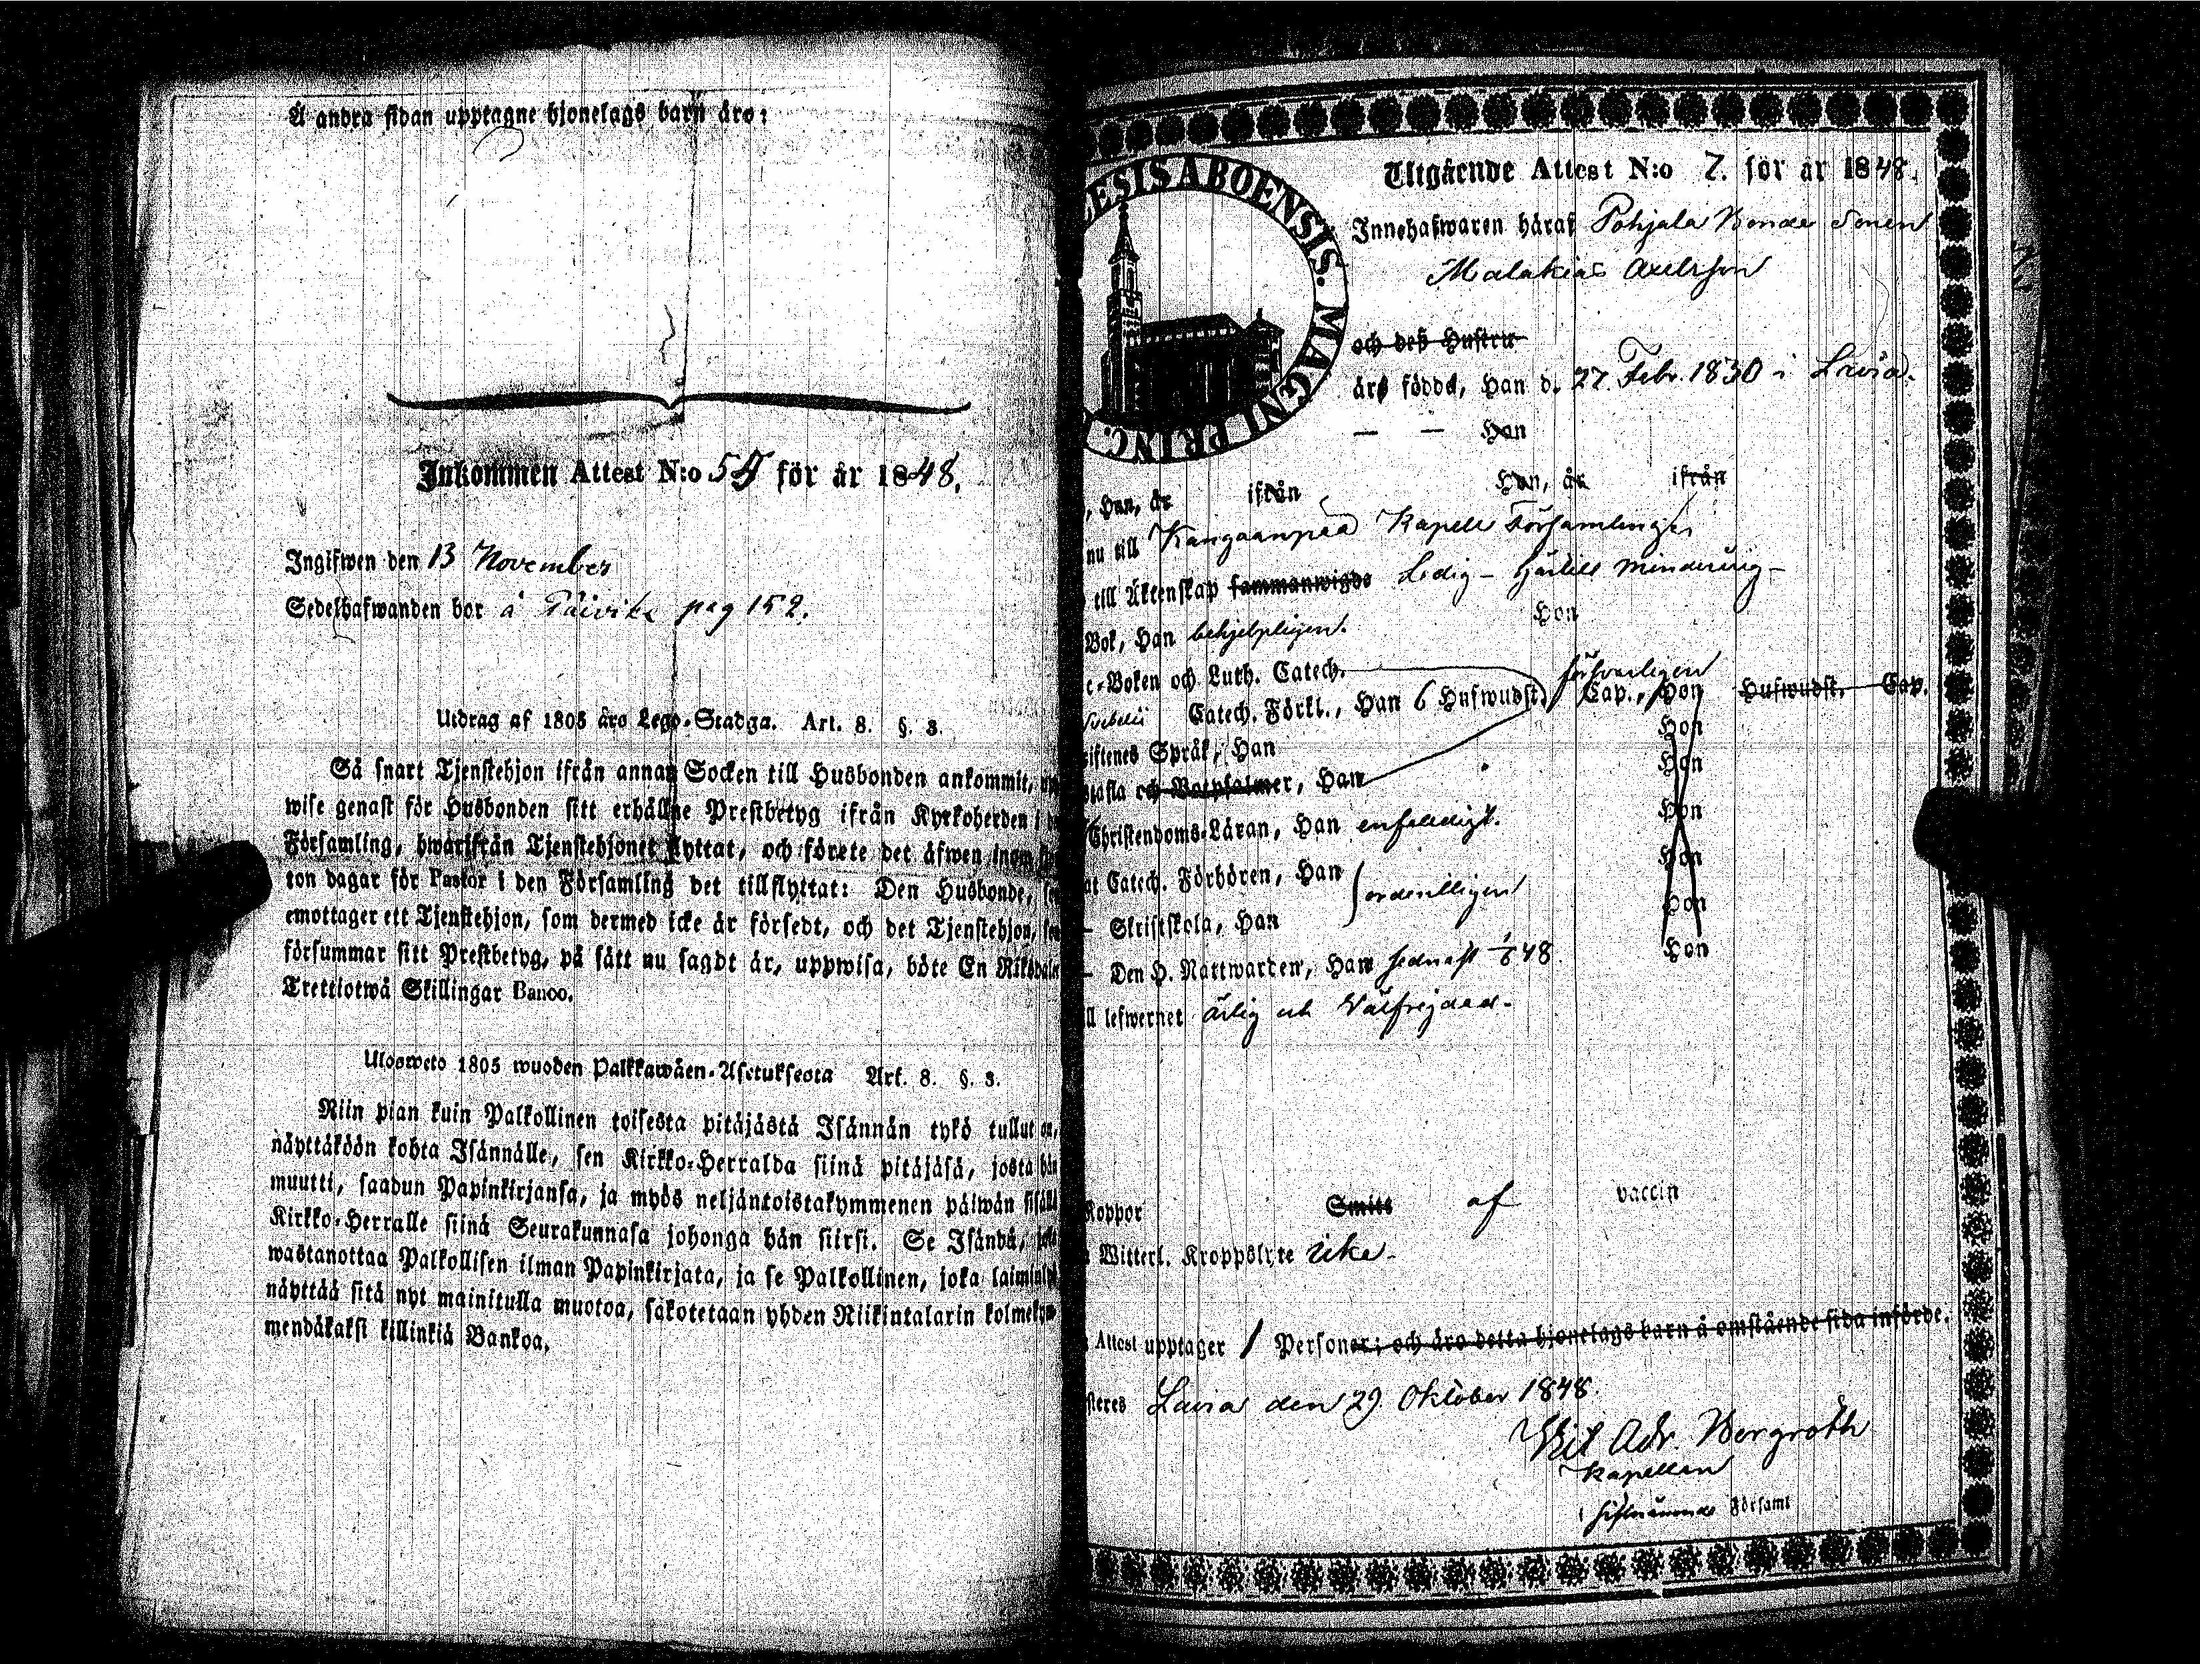 Å andra sidan upptagne hjonelags barn äro:
Inkommen Attest N:o 54 för år 1848.
Ingifwen den 13 November
Sedelhafwanden bor å Päivike pag 152.
Utdrag af 1805 års Lego-Stadga. Art. 8. §. 3.
Så snart Tjenstehjon ifrån annan Socken till Husbonden ankommit,
wise genast för Husbonden sitt erhållne Prestbetyg ifrån Kyrkoherden i
Församling, hwarifrån Tjenstehjonet flyttat, och förete det äfwen inom
ton dagar för Pastor i den Församling det tillflyttat: Den Husbonde,
emottager ett Tjenstehjon, som dermed icke är försedt, och det Tjenstehjon,
försummar sitt Prestbetyg, på sätt nu sagdt är, uppwisa, böte En Riksdaler
Trettiotwå Skillingar Banco.
Ulosweto 1805 wuoden Palkkawäen-Asetuksesta Art. 8. §. 3.
Niin pian kuin Palkollinen toisesta pitäjästä Isännän tykö tullut on,
näyttäköön kohta Isännälle, sen Kirkko-Herralda siinä pitäjäsä, josta hän
muutti, saadun Papinkirjansa, ja myös neljäntoistakymmenen päiwän sisällä
Kirkko-Herralle siinä Seurakunnasa johonga hän siirsi. Se Isändä, joka
wastanottaa Palkollisen ilman Papinkirjata, ja se Palkollinen, joka laiminlyö
näyttää sitä nyt mainitulla muotoa, sakotetaan yhden Riikintalarin kolmekym-
mendäkaksi killinkiä Bankoa.
ESIS ABOENSIS. MAGNI PRINC.
Utgående Attest N:o 7. för år 1848.
Innehafwaren häraf Pohjala Bonde Sonen
Malakias Axelsson
och deß Hustru
äro födde, Han d. 27. Febr. 1830 i Lavia.
— — Hon
, Han, år ifrån Hon, år ifrån
nu till Kangaanpää Kapell Församlingen
till Äktenskap sammanwigde Ledig - Minderårig -
Bok, Han behjelpligen. Hon
c-Boken och Luth. Catech. försvarligen
Svebelii Catech. Förkl., Han 6 Hufwudst. Cap., Hon Hufwudst. Cap.
iftenes Språk, Han Hon
tafla och Botpsalmer, Han Hon
Christendoms-Läran, Han enfaldigt. Hon
at Catech. Förhören, Han ordentligen Hon
— Skriftskola, Han Hon
— Den H. Nattwarden, Han sednast 1/6 48. Hon
ll lefwernet ärlig och Välfrejdad.
Koppor Smitt af vaccin
Witterl. Kroppslyte icke.
Attest upptager 1 Personer; och äro detta hjonelags barn å omstående sida införde.
steres Lavia den 29. Oktober 1848.
Adr. Bergroth
Kapellan
i sistnämnde Församl